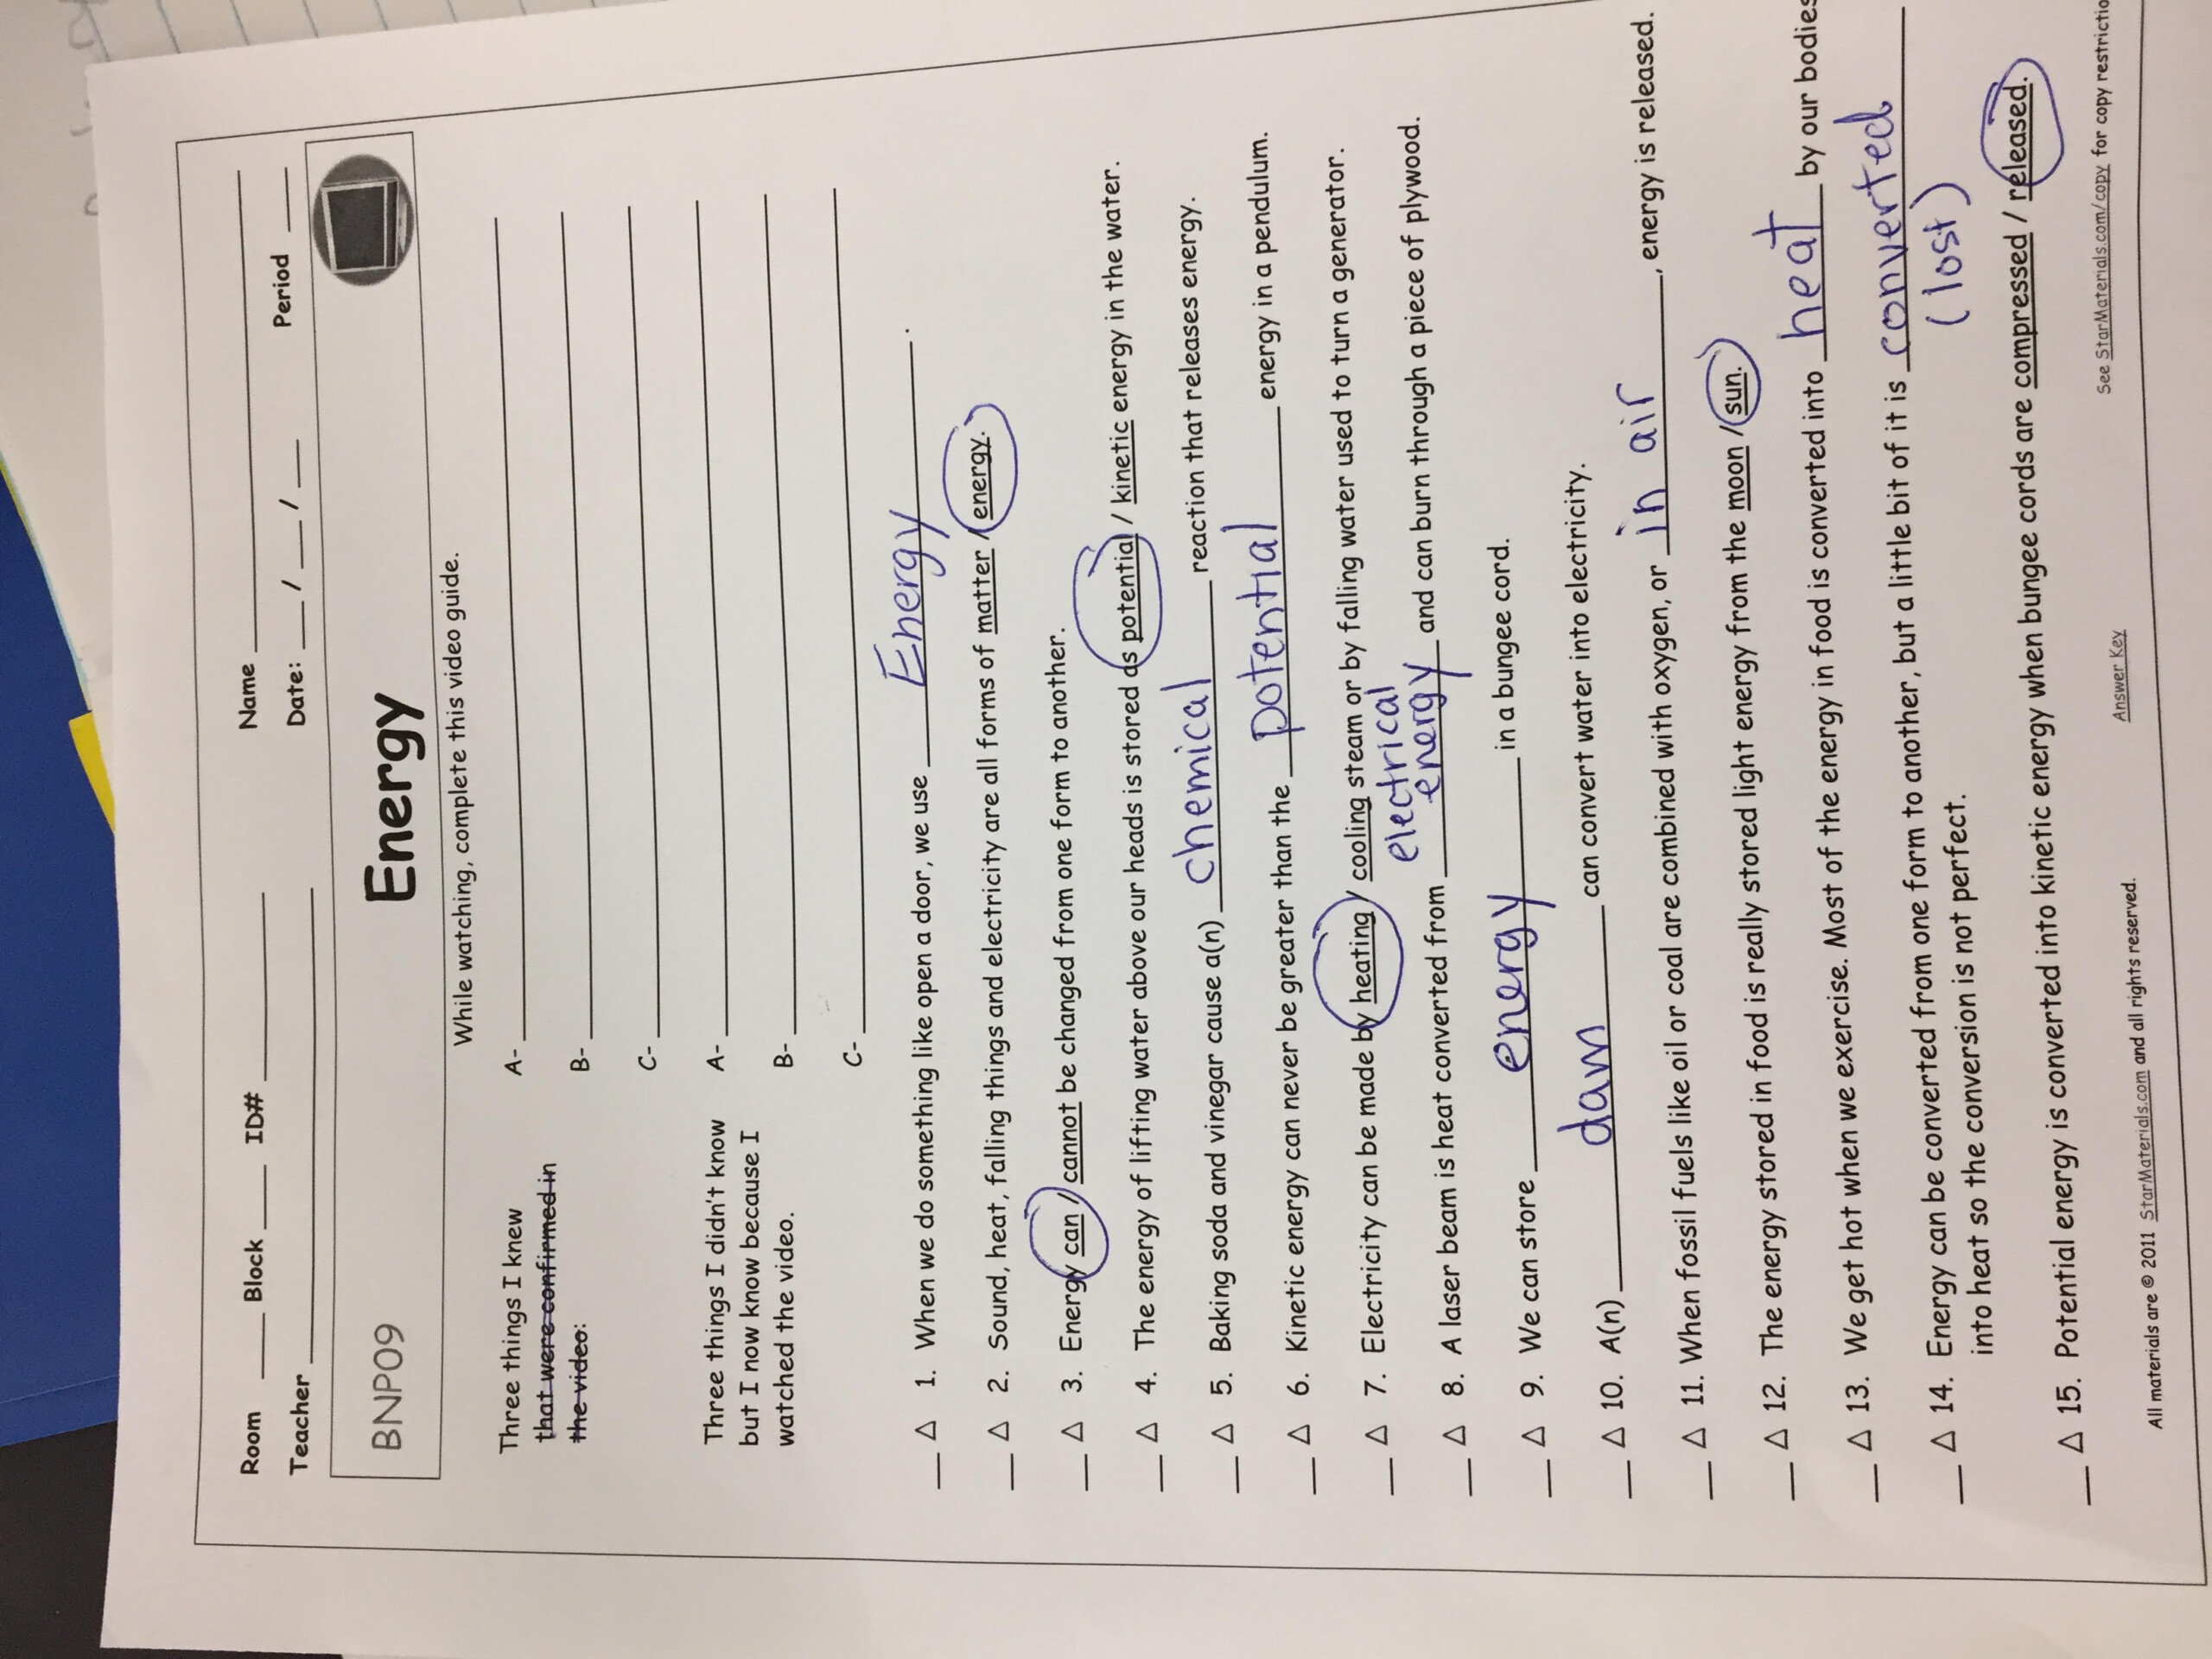 Room ____ Block ____ ID# ________ Name ________________
Teacher ________________ Date: ___ / ___ / ___ Period ____
BNP09 Energy
While watching, complete this video guide.
Three things I knew
that were confirmed in
the video:
A- ________________
B- ________________
C- ________________
Three things I didn't know
but I now know because I
watched the video.
A- ________________
B- ________________
C- ________________
__ Δ 1. When we do something like open a door, we use Energy.
__ Δ 2. Sound, heat, falling things and electricity are all forms of matter / energy.
__ Δ 3. Energy can / cannot be changed from one form to another.
__ Δ 4. The energy of lifting water above our heads is stored as potential / kinetic energy in the water.
__ Δ 5. Baking soda and vinegar cause a(n) chemical reaction that releases energy.
__ Δ 6. Kinetic energy can never be greater than the potential energy in a pendulum.
__ Δ 7. Electricity can be made by heating / cooling steam or by falling water used to turn a generator.
__ Δ 8. A laser beam is heat converted from electrical energy and can burn through a piece of plywood.
__ Δ 9. We can store energy in a bungee cord.
__ Δ 10. A(n) dam can convert water into electricity.
__ Δ 11. When fossil fuels like oil or coal are combined with oxygen, or in air, energy is released.
__ Δ 12. The energy stored in food is really stored light energy from the moon / sun.
__ Δ 13. We get hot when we exercise. Most of the energy in food is converted into heat by our bodies
__ Δ 14. Energy can be converted from one form to another, but a little bit of it is converted
(lost)
into heat so the conversion is not perfect.
__ Δ 15. Potential energy is converted into kinetic energy when bungee cords are compressed / released.
All materials are © 2011 StarMaterials.com and all rights reserved. Answer Key See StarMaterials.com/copy for copy restrictio